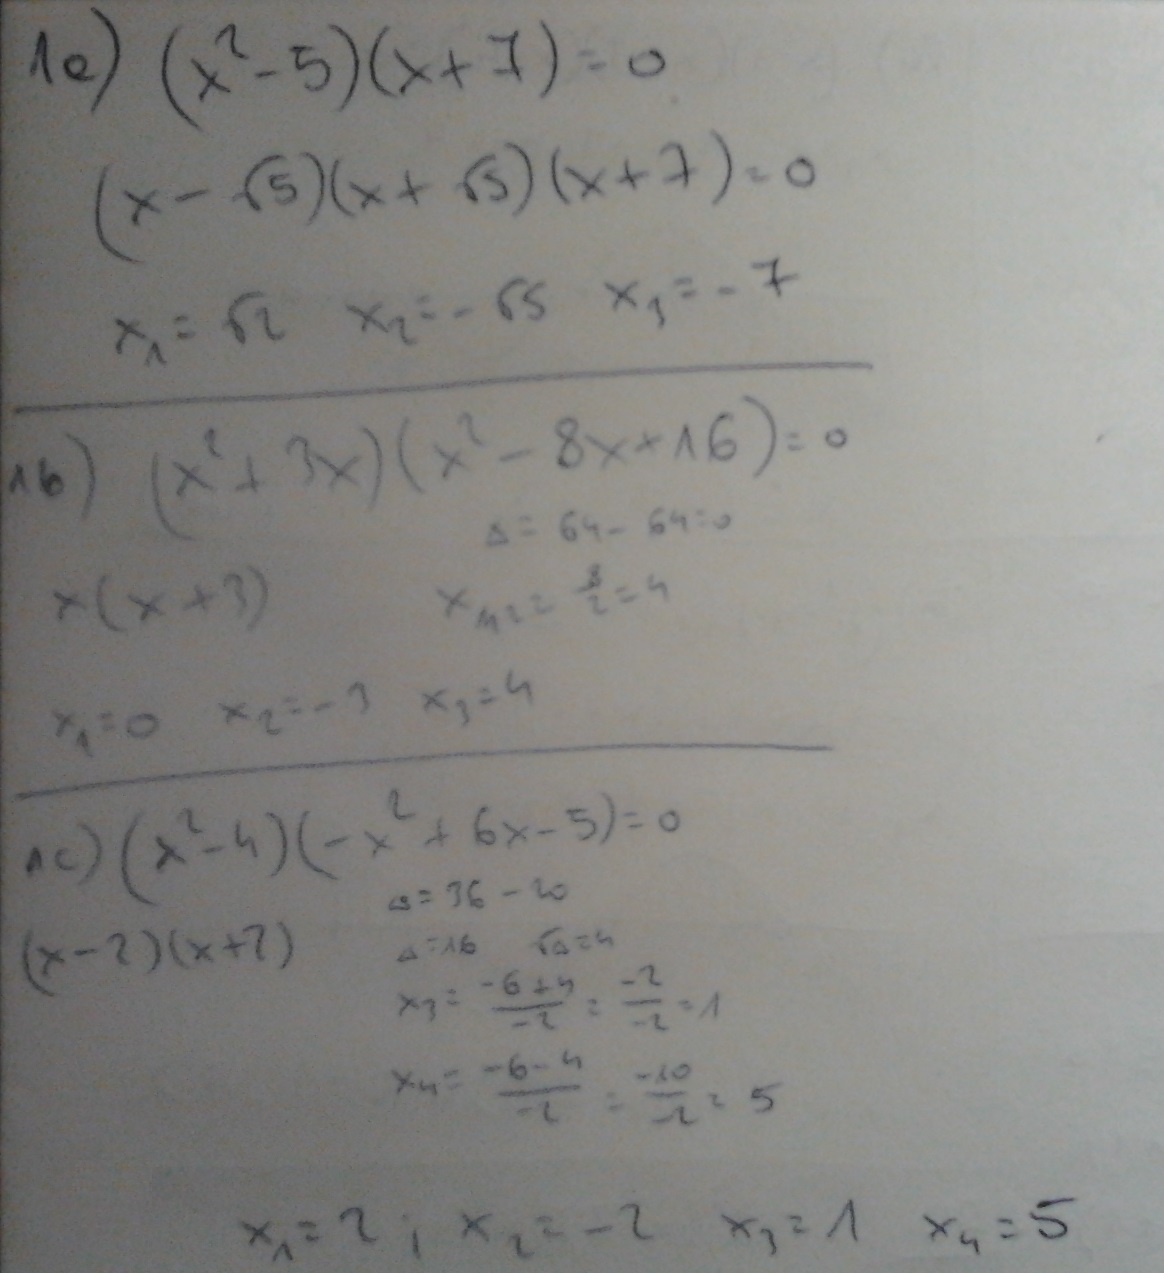 1a) (x²-5)(x+7)=0
(x-√5)(x+√5)(x+7)=0
x₁=√2 x₂=-√5 x₃=-7
1b) (x²+3x)(x²-8x+16)=0
Δ=64-64=0
x(x+3) x₁,₂=8/2=4
x₁=0 x₂=-3 x₃=4
1c) (x²-4)(-x²+6x-5)=0
Δ=36-20
(x-2)(x+2) Δ=16 √Δ=4
x₃=(-6+4)/(-2)=(-2)/(-2)=1
x₄=(-6-4)/(-2)=(-10)/(-2)=5
x₁=2; x₂=-2 x₃=1 x₄=5